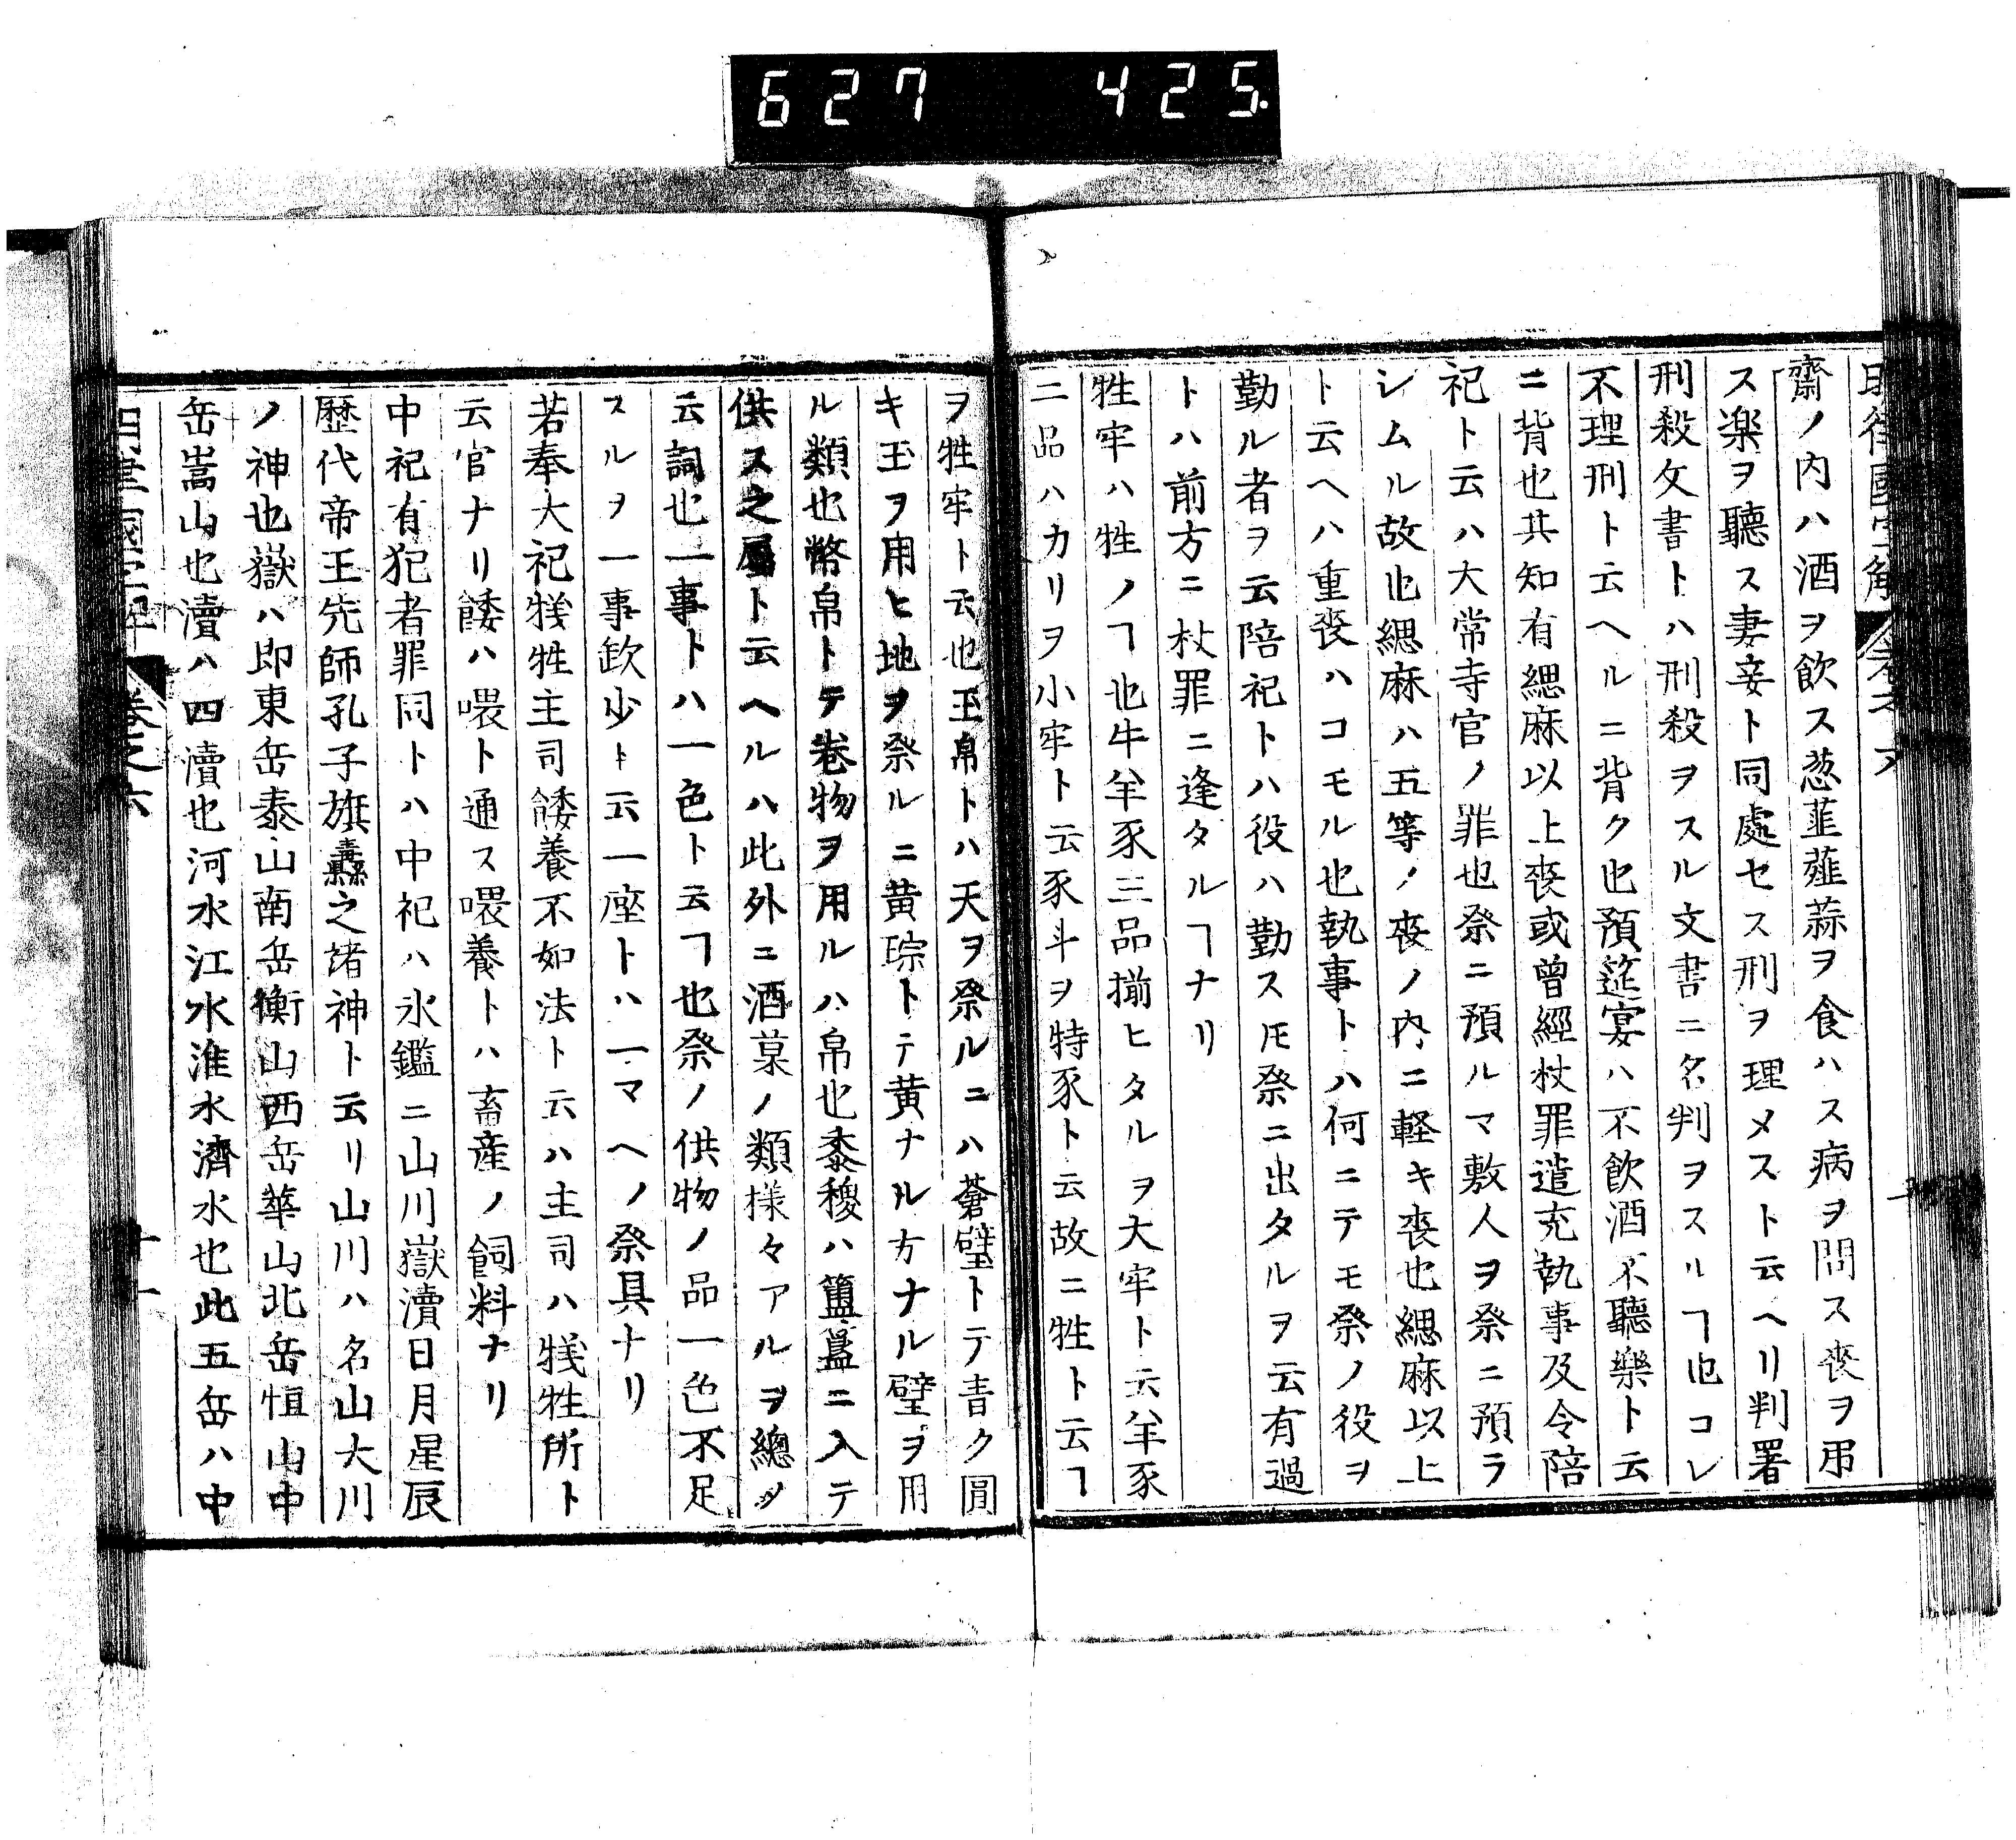 627 425.
明律國字解 卷之六
齋ノ内ハ酒ヲ飲ス葱韮薤蒜ヲ食ハス病ヲ問ス喪ヲ弔
ス楽ヲ聽ス妻妾ト同處セス刑ヲ理メスト云ヘリ判署
刑殺文書トハ刑殺ヲスル文書ニ名判ヲスルヿ也コレ
不理刑ト云ヘルニ背ク也預筵宴ハ不飲酒不聽樂ト云
ニ背也其知有緦麻以上喪或曾經杖罪遣充執事及令陪
祀ト云ハ大常寺官ノ罪也祭ニ預ルマ敷人ヲ祭ニ預ラ
シムル故也緦麻ハ五等ノ喪ノ内ニ軽キ喪也緦麻以上
ト云ヘハ重喪ハコモル也執事トハ何ニテモ祭ノ役ヲ
勤ル者ヲ云陪祀トハ役ハ勤スモ祭ニ出タルヲ云有過
トハ前方ニ杖罪ニ逢タルヿナリ
牲牢ハ牲ノヿ也牛羊豕三品揃ヒタルヲ大牢ト云羊豕
二品ハカリヲ小牢ト云豕斗ヲ特豕ト云故ニ牲ト云ヿ
ヲ牲牢ト云也玉帛トハ天ヲ祭ルニハ蒼璧トテ青ク圓
キ玉ヲ用ヒ地ヲ祭ルニ黄琮トテ黄ナル方ナル璧ヲ用
ル類也幣帛トテ卷物ヲ用ルハ帛也黍稷ハ簠簋ニ入テ
供ス之屬ト云ヘルハ此外ニ酒菓ノ類様々アルヲ總メ
云詞也一事トハ一色ト云ヿ也祭ノ供物ノ品一色不足
スルヲ一事欽少ト云一座トハ一マヘノ祭具ナリ
若奉大祀犠牲主司餧養不如法ト云ハ主司ハ犠牲所ト
云官ナリ餧ハ喂ト通ス喂養トハ畜産ノ飼料ナリ
中祀有犯者罪同トハ中祀ハ氷鑑ニ山川嶽瀆日月星辰
歷代帝王先師孔子旗纛之諸神ト云リ山川ハ名山大川
ノ神也嶽ハ即東岳泰山南岳衡山西岳華山北岳恒山中
岳嵩山也瀆ハ四瀆也河水江水淮水濟水也此五岳ハ中
明律國字解 卷之六 十一